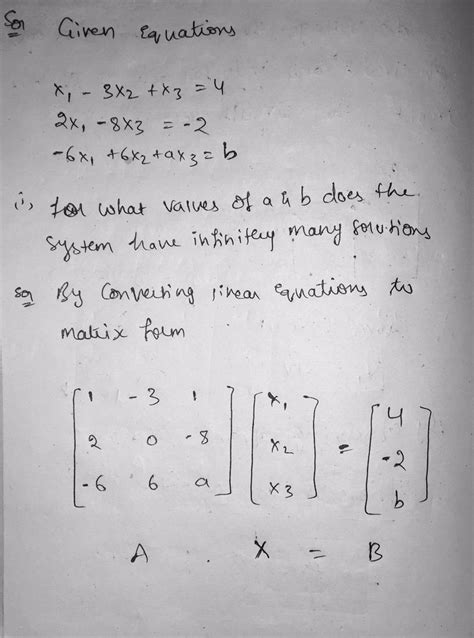 Sol Given Equations
x1 - 3x2 + x3 = 4
2x1 - 8x3 = -2
-6x1 + 6x2 + ax3 = b
i, for what values of a & b does the
system have infinitely many solutions
Sol By Converting linear equations to
matrix form
[ 1 -3 1 ] [ x1 ] [ 4 ]
[ 2 0 -8 ] [ x2 ] = [ -2 ]
[ -6 6 a ] [ x3 ] [ b ]
A . X = B